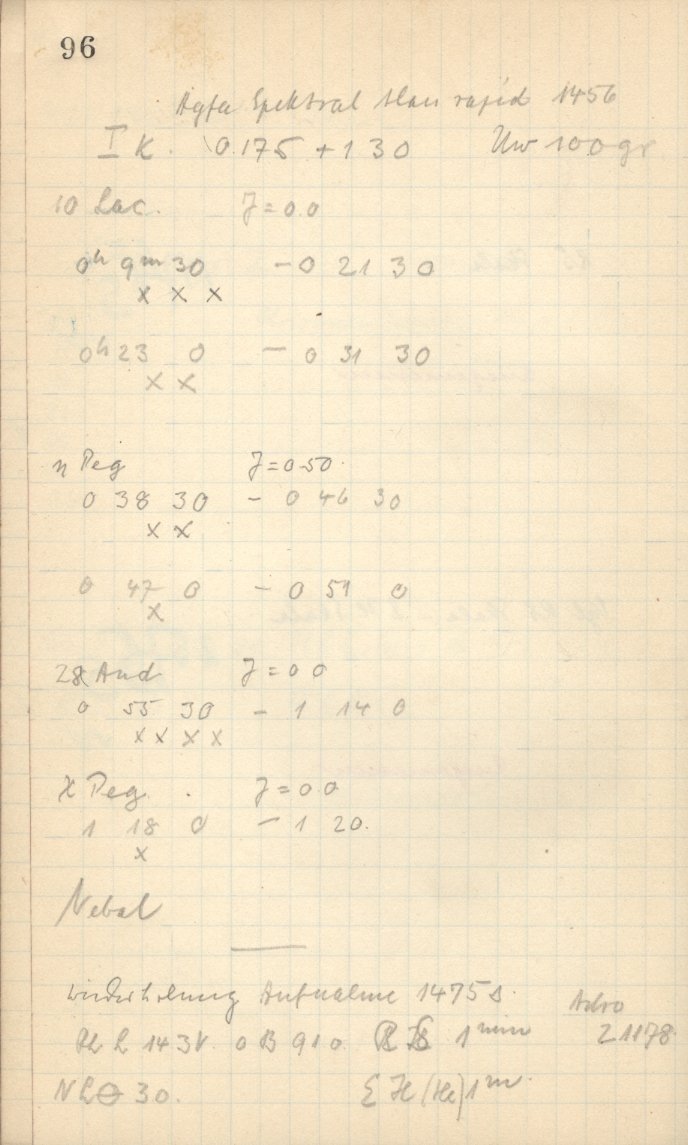 96
Agfa Spektral blau rapid 1456
I K. 0.175 + 1 30 Uw 100gr
10 Lac. J = 0.0
0h 9m 30 - 0 21 30
x x x
0h 23 0 - 0 31 30
x x
η Peg J = 0.50
0 38 30 - 0 46 30
x x
0 47 0 - 0 51 0
x
28 And J = 0 0
0 55 30 - 1 14 0
x x x x
χ Peg. J = 0 0
1 18 0 - 1 20.
x
Nebel
Wiederholung Aufnahme 1475 s.
L 143V. 0 B 910. 1mm 21178
30. (He) 1m